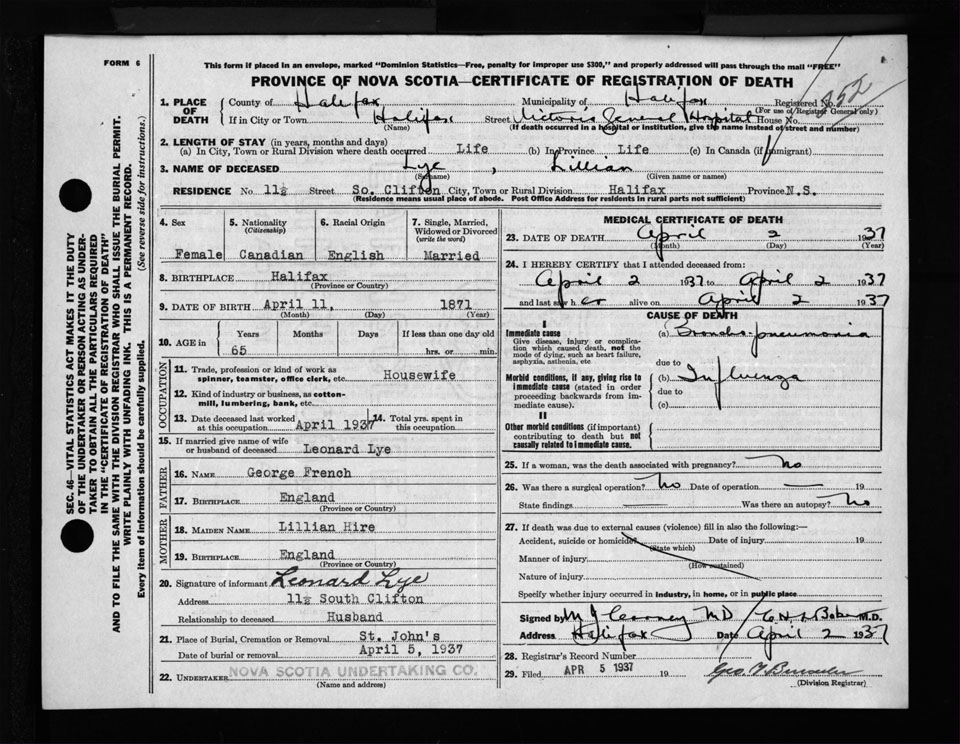 FORM 6
This form if placed in an envelope, marked "Dominion Statistics—Free, penalty for improper use $300," and properly addressed will pass through the mail "FREE"
PROVINCE OF NOVA SCOTIA—CERTIFICATE OF REGISTRATION OF DEATH
1. PLACE OF DEATH
County of Halifax Municipality of Halifax Registered No. 352
(For use of Registrar General only)
If in City or Town Halifax Street Victoria General Hospital House No.
(Name) (If death occurred in a hospital or institution, give the name instead of street and number)
2. LENGTH OF STAY (in years, months and days)
(a) In City, Town or Rural Division where death occurred Life (b) In Province Life (c) In Canada (if immigrant)
3. NAME OF DECEASED Lye, Lillian
(Surname) (Given name or names)
RESIDENCE No 11½ Street So. Clifton City, Town or Rural Division Halifax Province N.S.
(Residence means usual place of abode. Post Office Address for residents in rural parts not sufficient)
4. Sex 5. Nationality (Citizenship) 6. Racial Origin 7. Single, Married, Widowed or Divorced (write the word)
Female Canadian English Married
8. BIRTHPLACE Halifax
(Province or Country)
9. DATE OF BIRTH April 11, 1871
(Month) (Day) (Year)
10. AGE in Years Months Days If less than one day old
65 hrs. or min.
OCCUPATION
11. Trade, profession or kind of work as spinner, teamster, office clerk, etc. Housewife
12. Kind of industry or business, as cotton-mill, lumbering, bank, etc.
13. Date deceased last worked at this occupation April 1937 14. Total yrs. spent in this occupation
15. If married give name of wife or husband of deceased Leonard Lye
FATHER
16. NAME George French
17. BIRTHPLACE England
(Province or Country)
MOTHER
18. MAIDEN NAME Lillian Hire
19. BIRTHPLACE England
(Province or Country)
20. Signature of informant Leonard Lye
Address 11½ South Clifton
Relationship to deceased Husband
21. Place of Burial, Cremation or Removal St. John's
Date of burial or removal April 5, 1937
22. UNDERTAKER NOVA SCOTIA UNDERTAKING CO.
(Name and address)
MEDICAL CERTIFICATE OF DEATH
23. DATE OF DEATH April 2 1937
(Month) (Day) (Year)
24. I HEREBY CERTIFY that I attended deceased from:
April 2 1937 to April 2 1937
and last saw her alive on April 2 1937
CAUSE OF DEATH
I
Immediate cause (a) Broncho-pneumonia
Give disease, injury or complication which caused death, not the mode of dying, such as heart failure, asphyxia, asthenia, etc
due to
Morbid conditions, if any, giving rise to immediate cause (stated in order proceeding backwards from immediate cause). (b) Influenza
due to
(c)
II
Other morbid conditions (if important) contributing to death but not causally related to immediate cause.
25. If a woman, was the death associated with pregnancy? No
26. Was there a surgical operation? No Date of operation — 19
State findings — Was there an autopsy? No
27. If death was due to external causes (violence) fill in also the following:—
Accident, suicide or homicide? Date of injury 19
(State which)
Manner of injury
(How sustained)
Nature of injury
Specify whether injury occurred in industry, in home, or in public place
Signed by M.D. / M.D.
Address Halifax Date April 2 1937
28. Registrar's Record Number
29. Filed APR 5 1937 19 Geo.
(Division Registrar)
SEC. 46—VITAL STATISTICS ACT MAKES IT THE DUTY
OF THE UNDERTAKER OR PERSON ACTING AS UNDER-
TAKER TO OBTAIN ALL THE PARTICULARS REQUIRED
IN THE "CERTIFICATE OF REGISTRATION OF DEATH"
AND TO FILE THE SAME WITH THE DIVISION REGISTRAR WHO SHALL ISSUE THE BURIAL PERMIT.
WRITE PLAINLY WITH UNFADING INK. THIS IS A PERMANENT RECORD.
Every item of information should be carefully supplied. (See reverse side for instructions.)